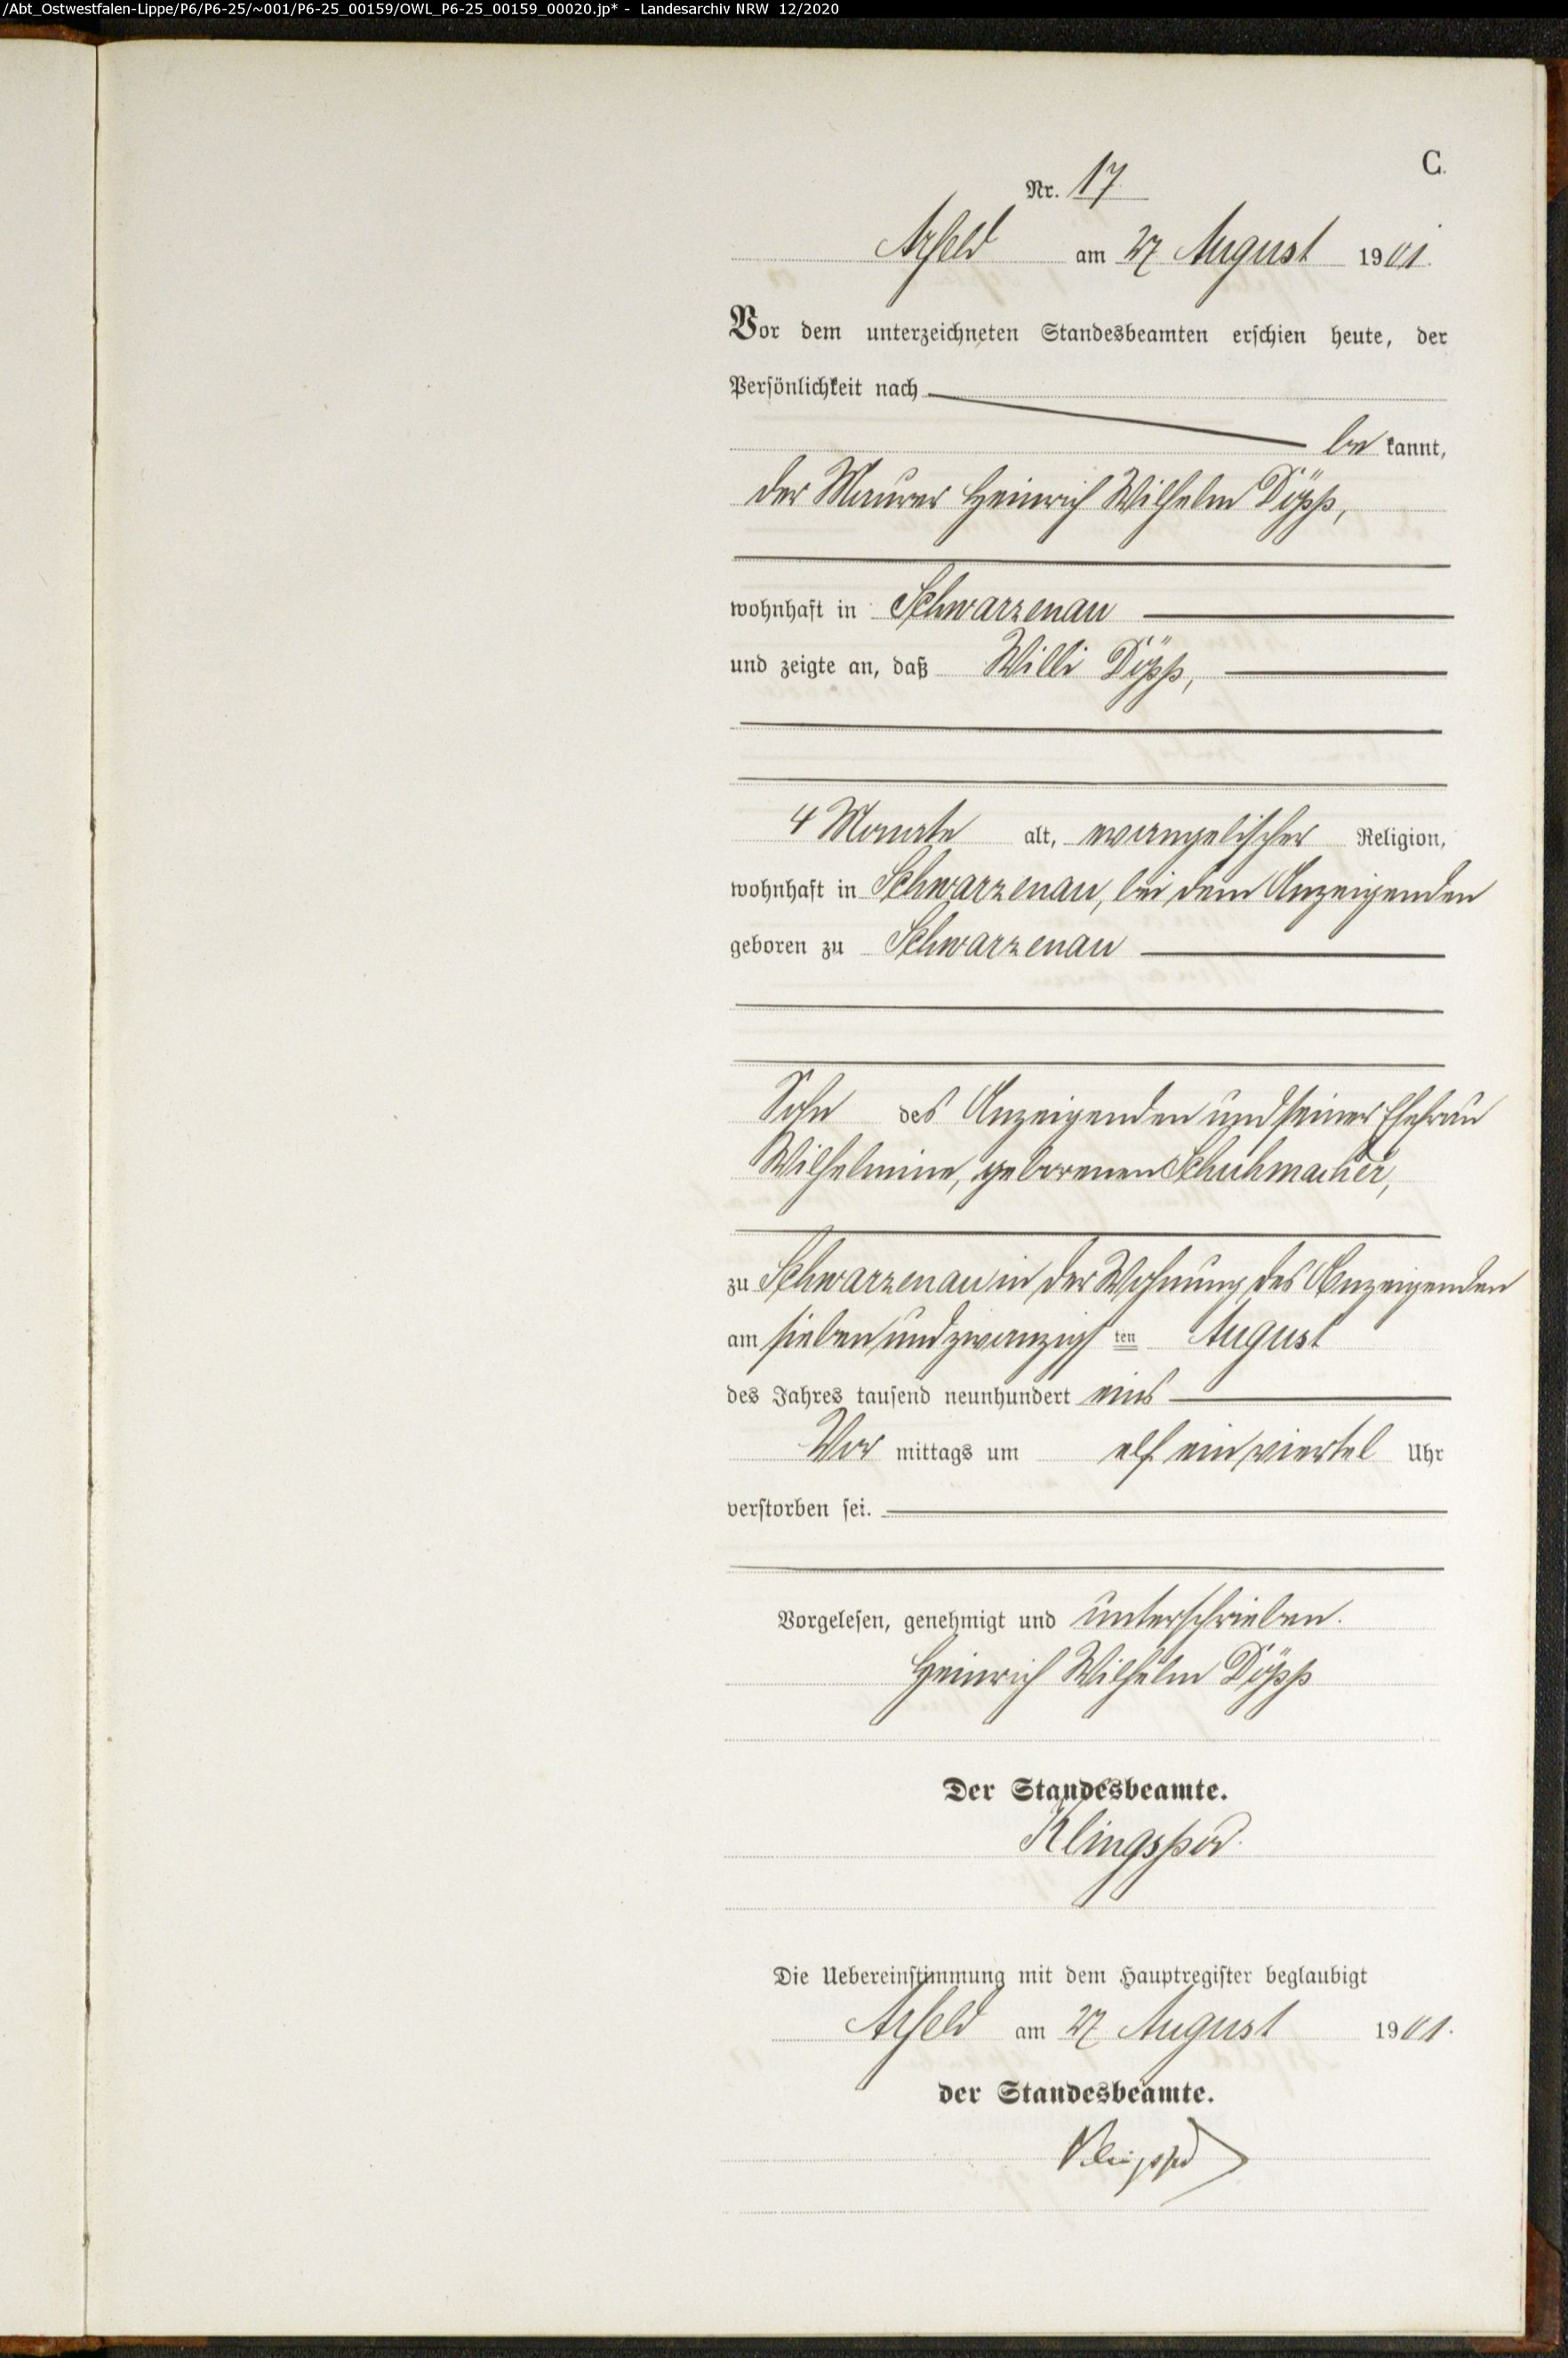 /Abt_Ostwestfalen-Lippe/P6/P6-25/~001/P6-25_00159/OWL_P6-25_00159_00020.jp* - Landesarchiv NRW 12/2020
C.
Nr. 17
Arfeld am 27 August 1901.
Vor dem unterzeichneten Standesbeamten erschien heute, der
Persönlichkeit nach
be kannt,
der Maurer Heinrich Wilhelm Döpp,
wohnhaft in Schwarzenau
und zeigte an, daß Willi Döpp,
4 Monate alt, evangelischer Religion,
wohnhaft in Schwarzenau, bei dem Anzeigenden
geboren zu Schwarzenau
Sohn des Anzeigenden und seiner Ehefrau
Wilhelmine, geborenen Schuhmacher,
zu Schwarzenau in der Wohnung des Anzeigenden
am sieben und zwanzigsten August
des Jahres tausend neunhundert eins
Vor mittags um elf ein viertel Uhr
verstorben sei.
Vorgelesen, genehmigt und unterschrieben.
Heinrich Wilhelm Döpp
Der Standesbeamte.
Klingspor.
Die Uebereinstimmung mit dem Hauptregister beglaubigt
Arfeld am 27 August 1901.
der Standesbeamte.
Klingspor